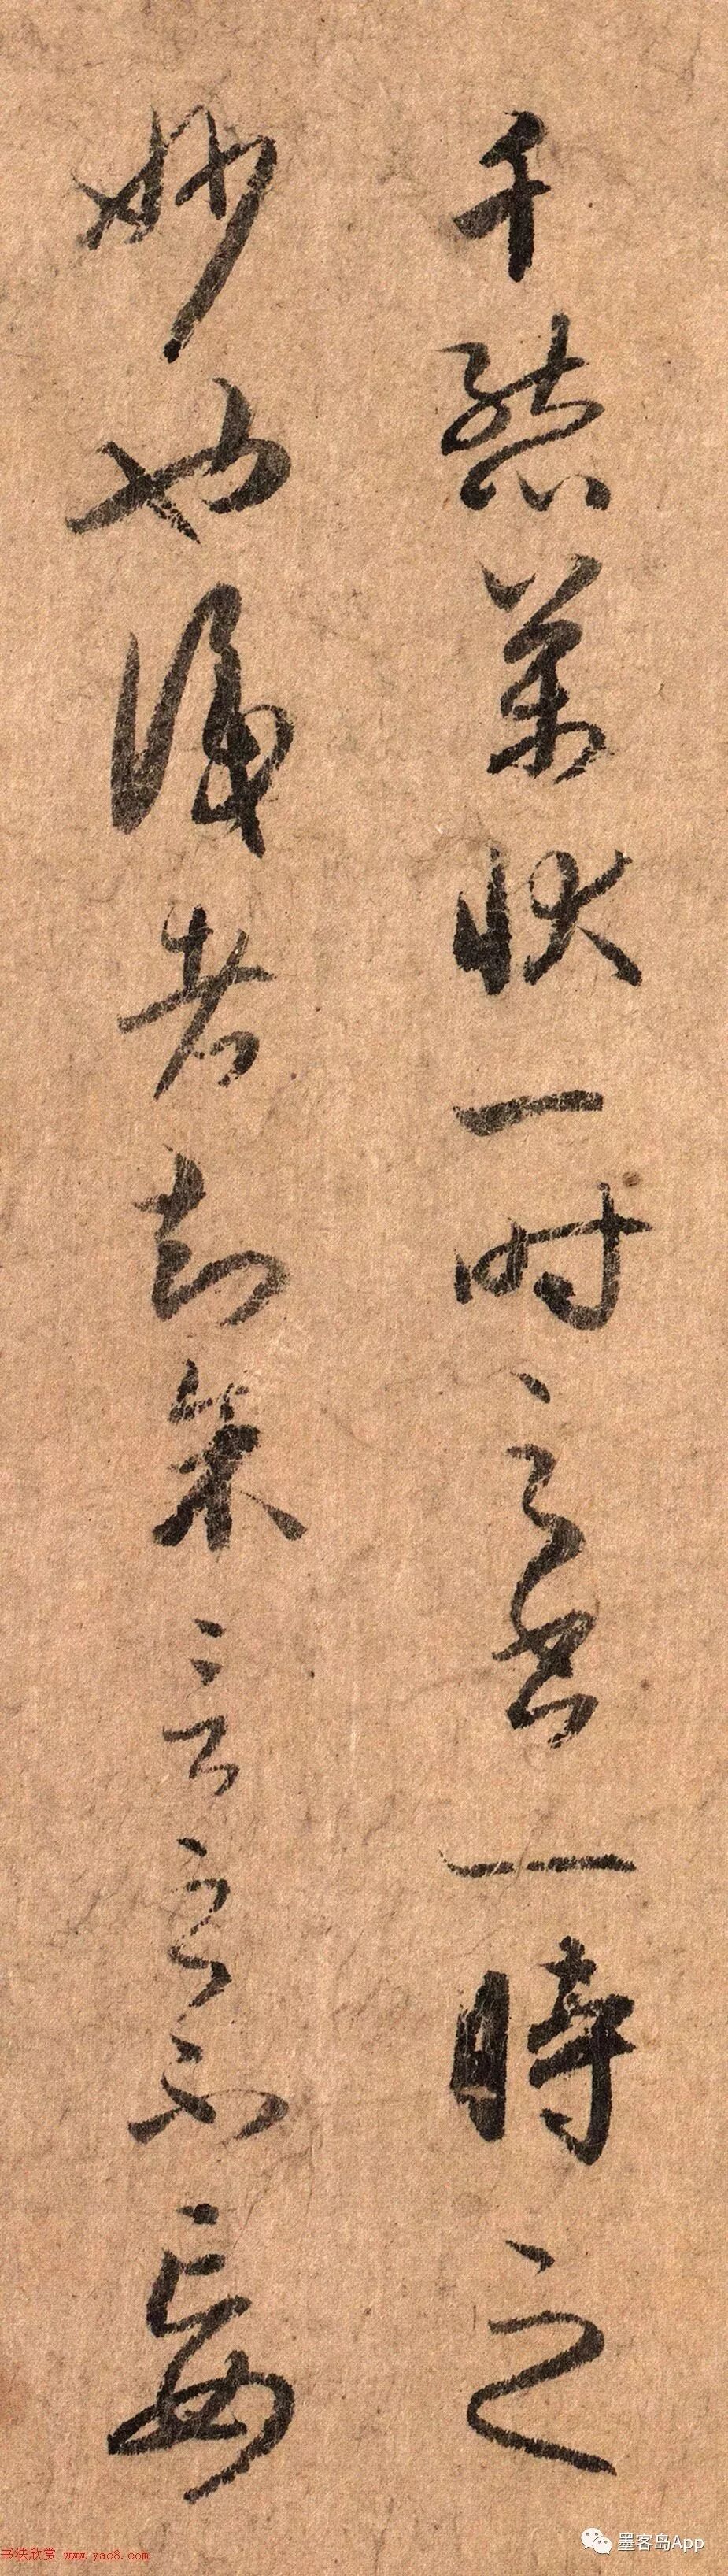 千態萬狀一時之一時之
妙也識者知朱言之不妄
书法欣赏 www.yac8.com
墨客岛App